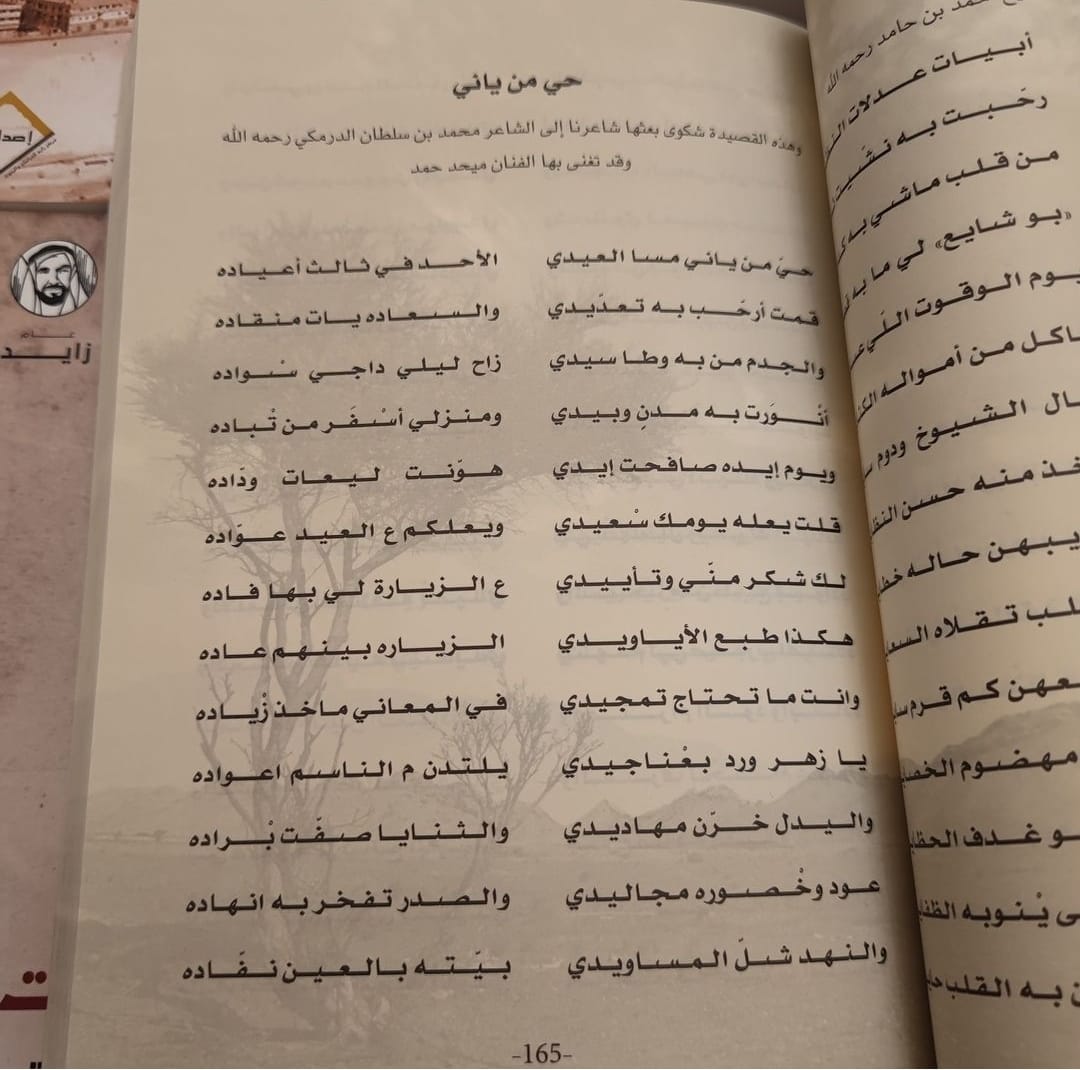 حي من ياني
وهذه القصيدة شكوى بعثها شاعرنا إلى الشاعر محمد بن سلطان الدرمكي رحمه الله
وقد تغنى بها الفنان ميحد حمد
حيّ من ياني مسا العيدي الأحد في ثالث أعياده
قمت أرحّب به تعدّيدي والسعاده يات منقاده
والجدم من به وطا سيدي زاح ليلي داجي سْواده
أنْورت به مدنٍ وبيدي ومنزلي أسْفَر من تْباده
ويوم إيده صافحت إيدي هوّنت ليعات ودّاده
قلت يعله يومك سْعيدي ويعلكم ع العيد عوّاده
لك شكر منّي وتأييدي ع الزيارة لي بها فاده
هكذا طبع الأياويدي الزياره بينهم عاده
وانت ما تحتاج تمجيدي في المعاني ماخذ زْياده
يا زهر ورد بعْناجيدي يلتدن م الناسم اعواده
واليدل خرّن مهاديدي والثنايا صفّت بْراده
عود وخْصوره مجاليدي والصدر تفخر به انهاده
والنهد شلّ المساويدي بيّته بالعين نفّاده
-165-
حمد بن حامد رحمه الله
أبيات عدلات
رحّبت به نشّيت
من قلب ماشي به
«بو شايع» لي ما به
يوم الوقوت اللّي
ماكل من أمواله
الشيوخ ودوم
منه حسن
يبهن حاله
تقلاه
كم قرم
مهضوم
غدف
يْنوبه
به القلب
عام
زايد